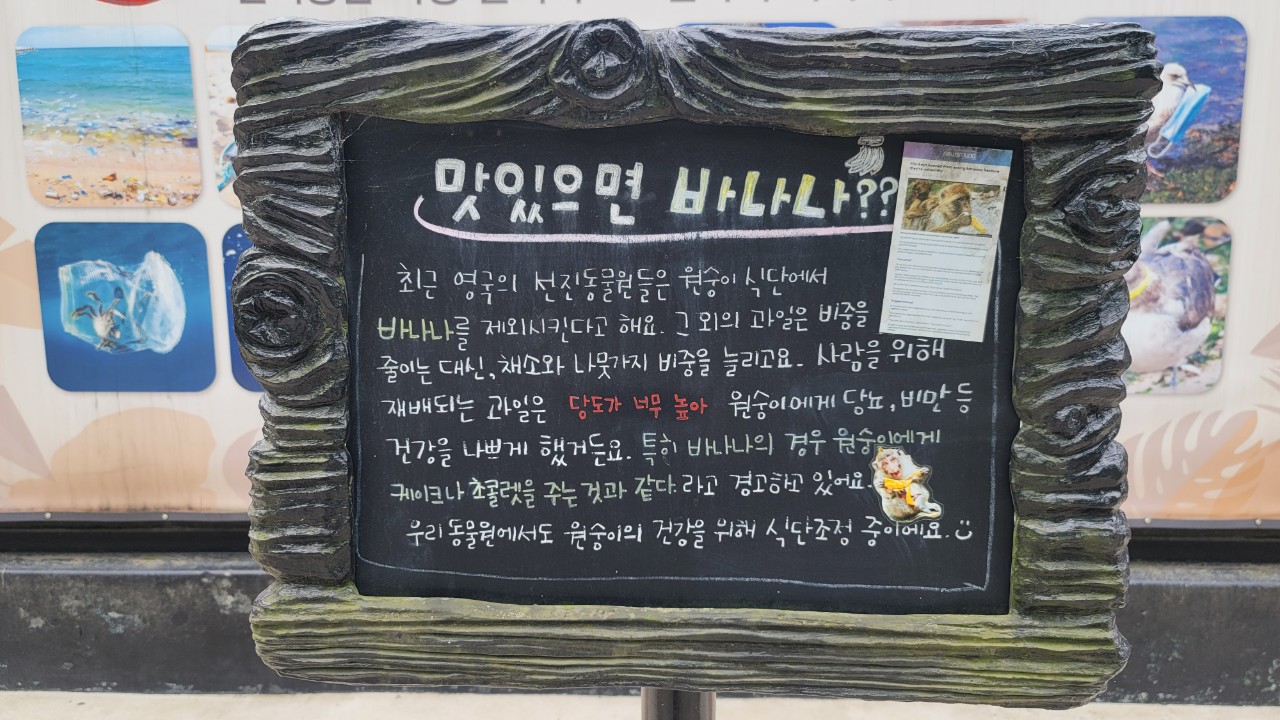 맛있으면 바나나??
최근 영국의 선진동물원들은 원숭이 식단에서
바나나를 제외시킨다고 해요. 그 외의 과일은 비중을
줄이는 대신, 채소와 나뭇가지 비중을 늘리고요. 사람을 위해
재배되는 과일은 당도가 너무 높아 원숭이에게 당뇨, 비만 등
건강을 나쁘게 했거든요. 특히 바나나의 경우 원숭이에게
케이크나 초콜렛을 주는것과 같다.라고 경고하고 있어요.
우리동물원에서도 원숭이의 건강을 위해 식단조정 중이에요.